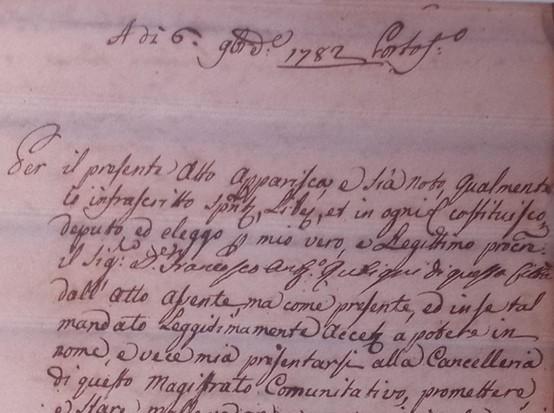 A di 6: 9bre. 1782 Portof:o
Per il presente Atto apparisca, e sia noto, qualmente
io infrascritto spte, Libe, et in ogni costituisco,
deputo, ed eleggo p mio vero, e Legittimo procu-
il Sig:r D. Francesco Ant:o di questa
dall'Atto assente, ma come presente, ed in se tal
mandato Leggitimamente Accete a potere in
nome, e vece mia presentarsi alla Cancelleria
di questo Magistrato Comunitativo, promettere,
e stare